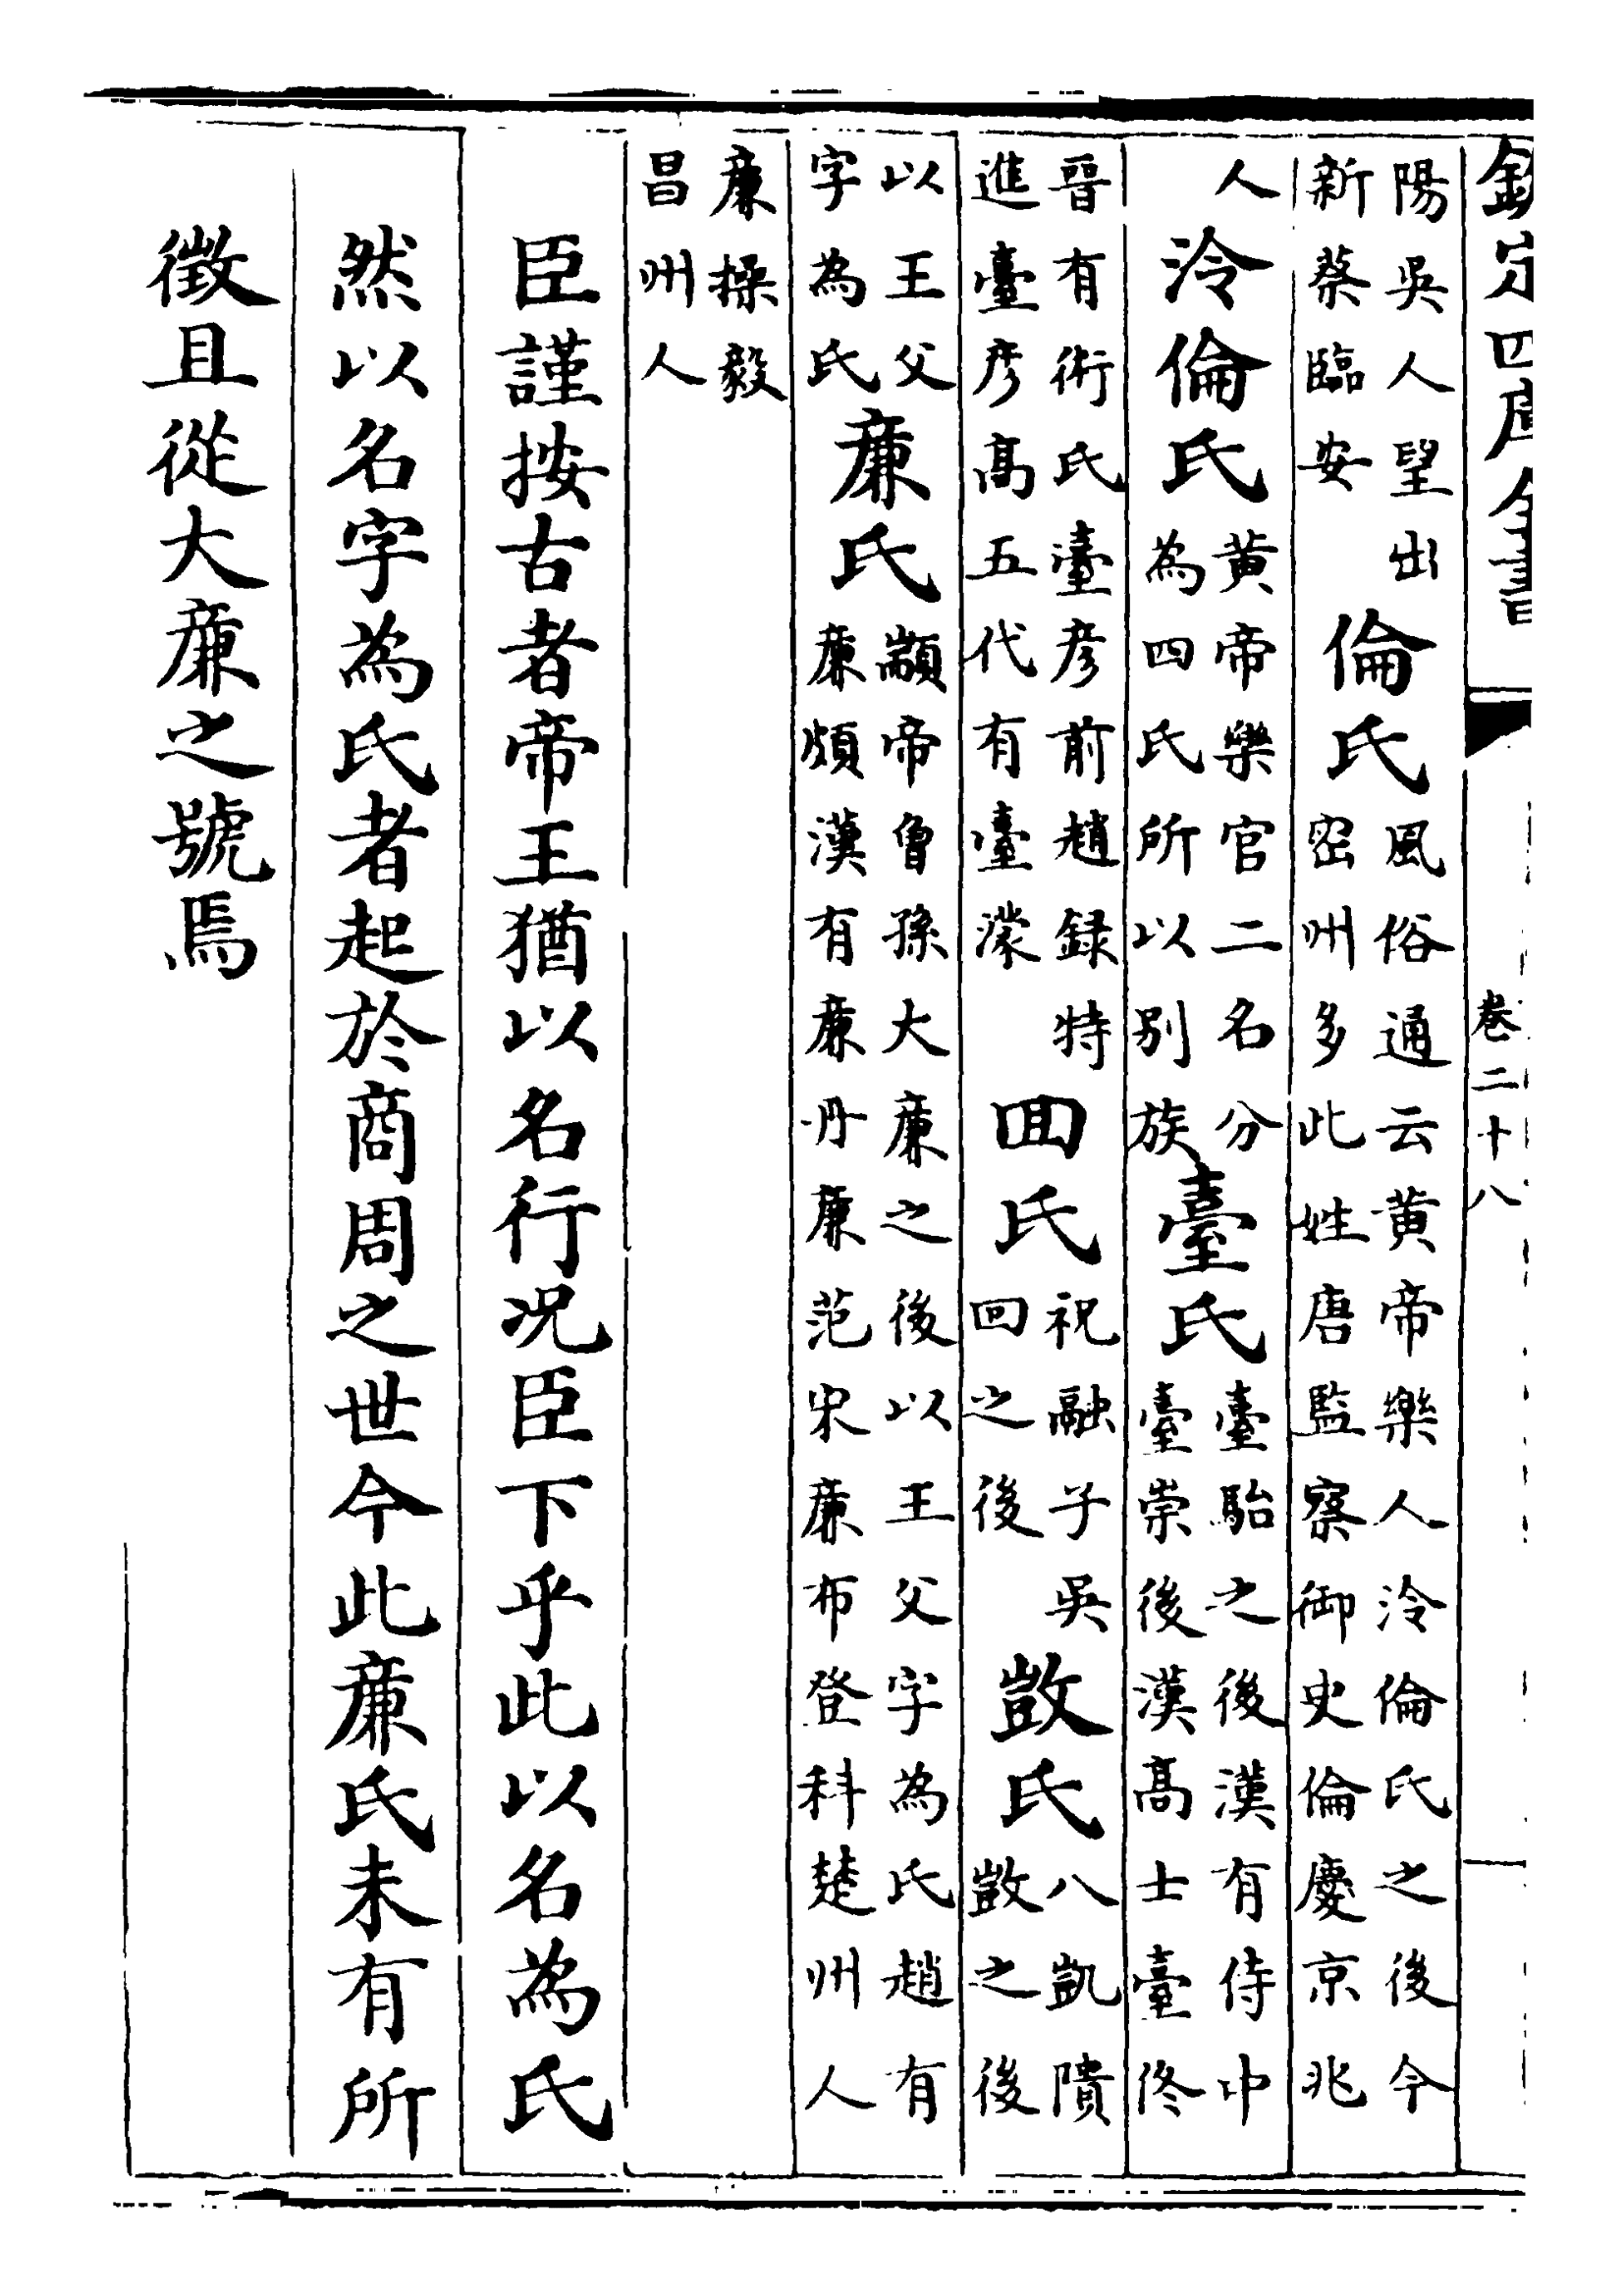 欽定四庫全書 卷二十八
陽吳人望出新蔡臨安 倫氏 風俗通云黄帝樂人泠倫氏之後今密州多此姓唐監察御史倫慶京兆
人 泠倫氏 黄帝樂官二名分為四氏所以别族 臺氏 臺駘之後漢有侍中臺崇後漢髙士臺佟
晉有術氏臺彦前趙録特進臺彦髙五代有臺濛 回氏 祝融子吳回之後 敳氏 八凱隤敳之後
以王父字為氏 亷氏 顓帝曾孫大亷之後以王父字為氏趙有亷頗漢有亷丹亷范宋亷布登科楚州人
亷操毅昌州人
臣謹按古者帝王猶以名行况臣下乎此以名為氏
然以名字為氏者起於商周之世今此亷氏未有所
徴且從大亷之號焉